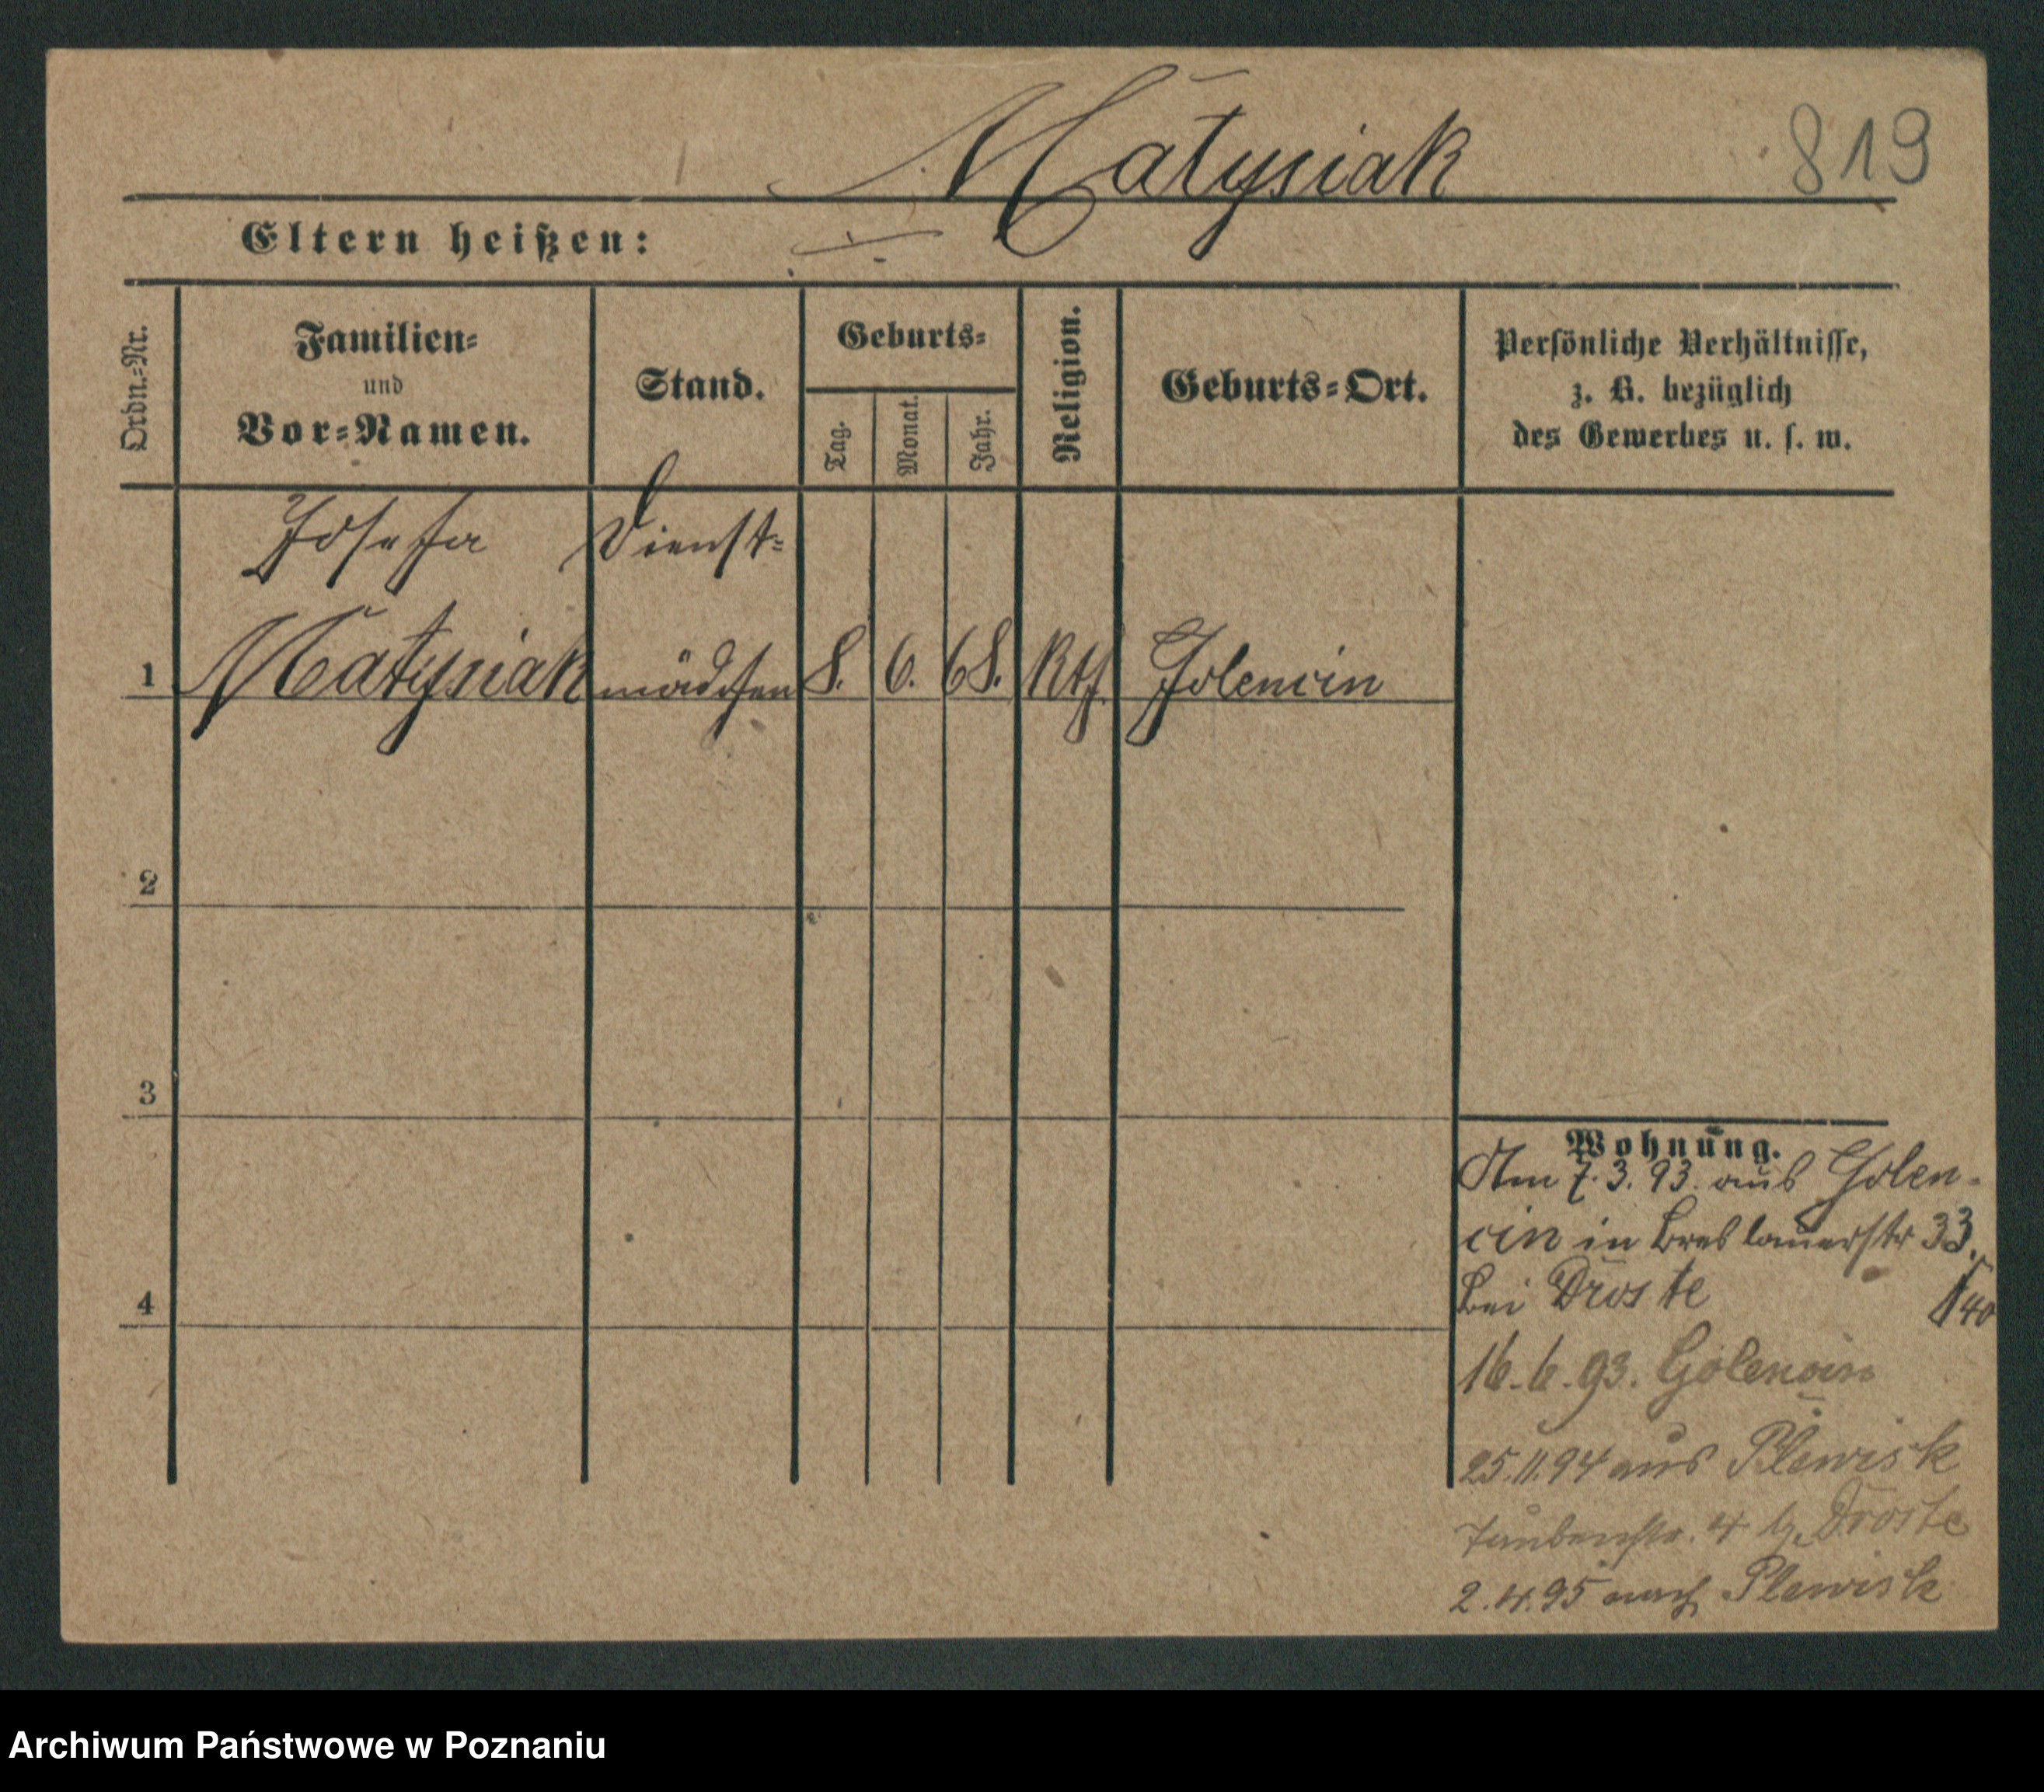 Matysiak 819
Eltern heißen:
Ordn.=Nr.
Familien=
und
Vor=Namen.
Stand.
Geburts=
Tag.
Monat.
Jahr.
Religion.
Geburts=Ort.
Persönliche Verhältnisse,
z. B. bezüglich
des Gewerbes u. s. w.
Josefa Dienst=
1 Matysiak mädchen 8. 6. 68. Kth Golencin
2
3
4
Wohnung.
Am 7.3.93. aus Golen-
cin in Breslauerstr 33.
bei Droste
16.6.93. Golencin
25.11.94 aus Plewisk
Taubenstr. 4 b. Droste
2.4.95 nach Plewisk
Archiwum Państwowe w Poznaniu